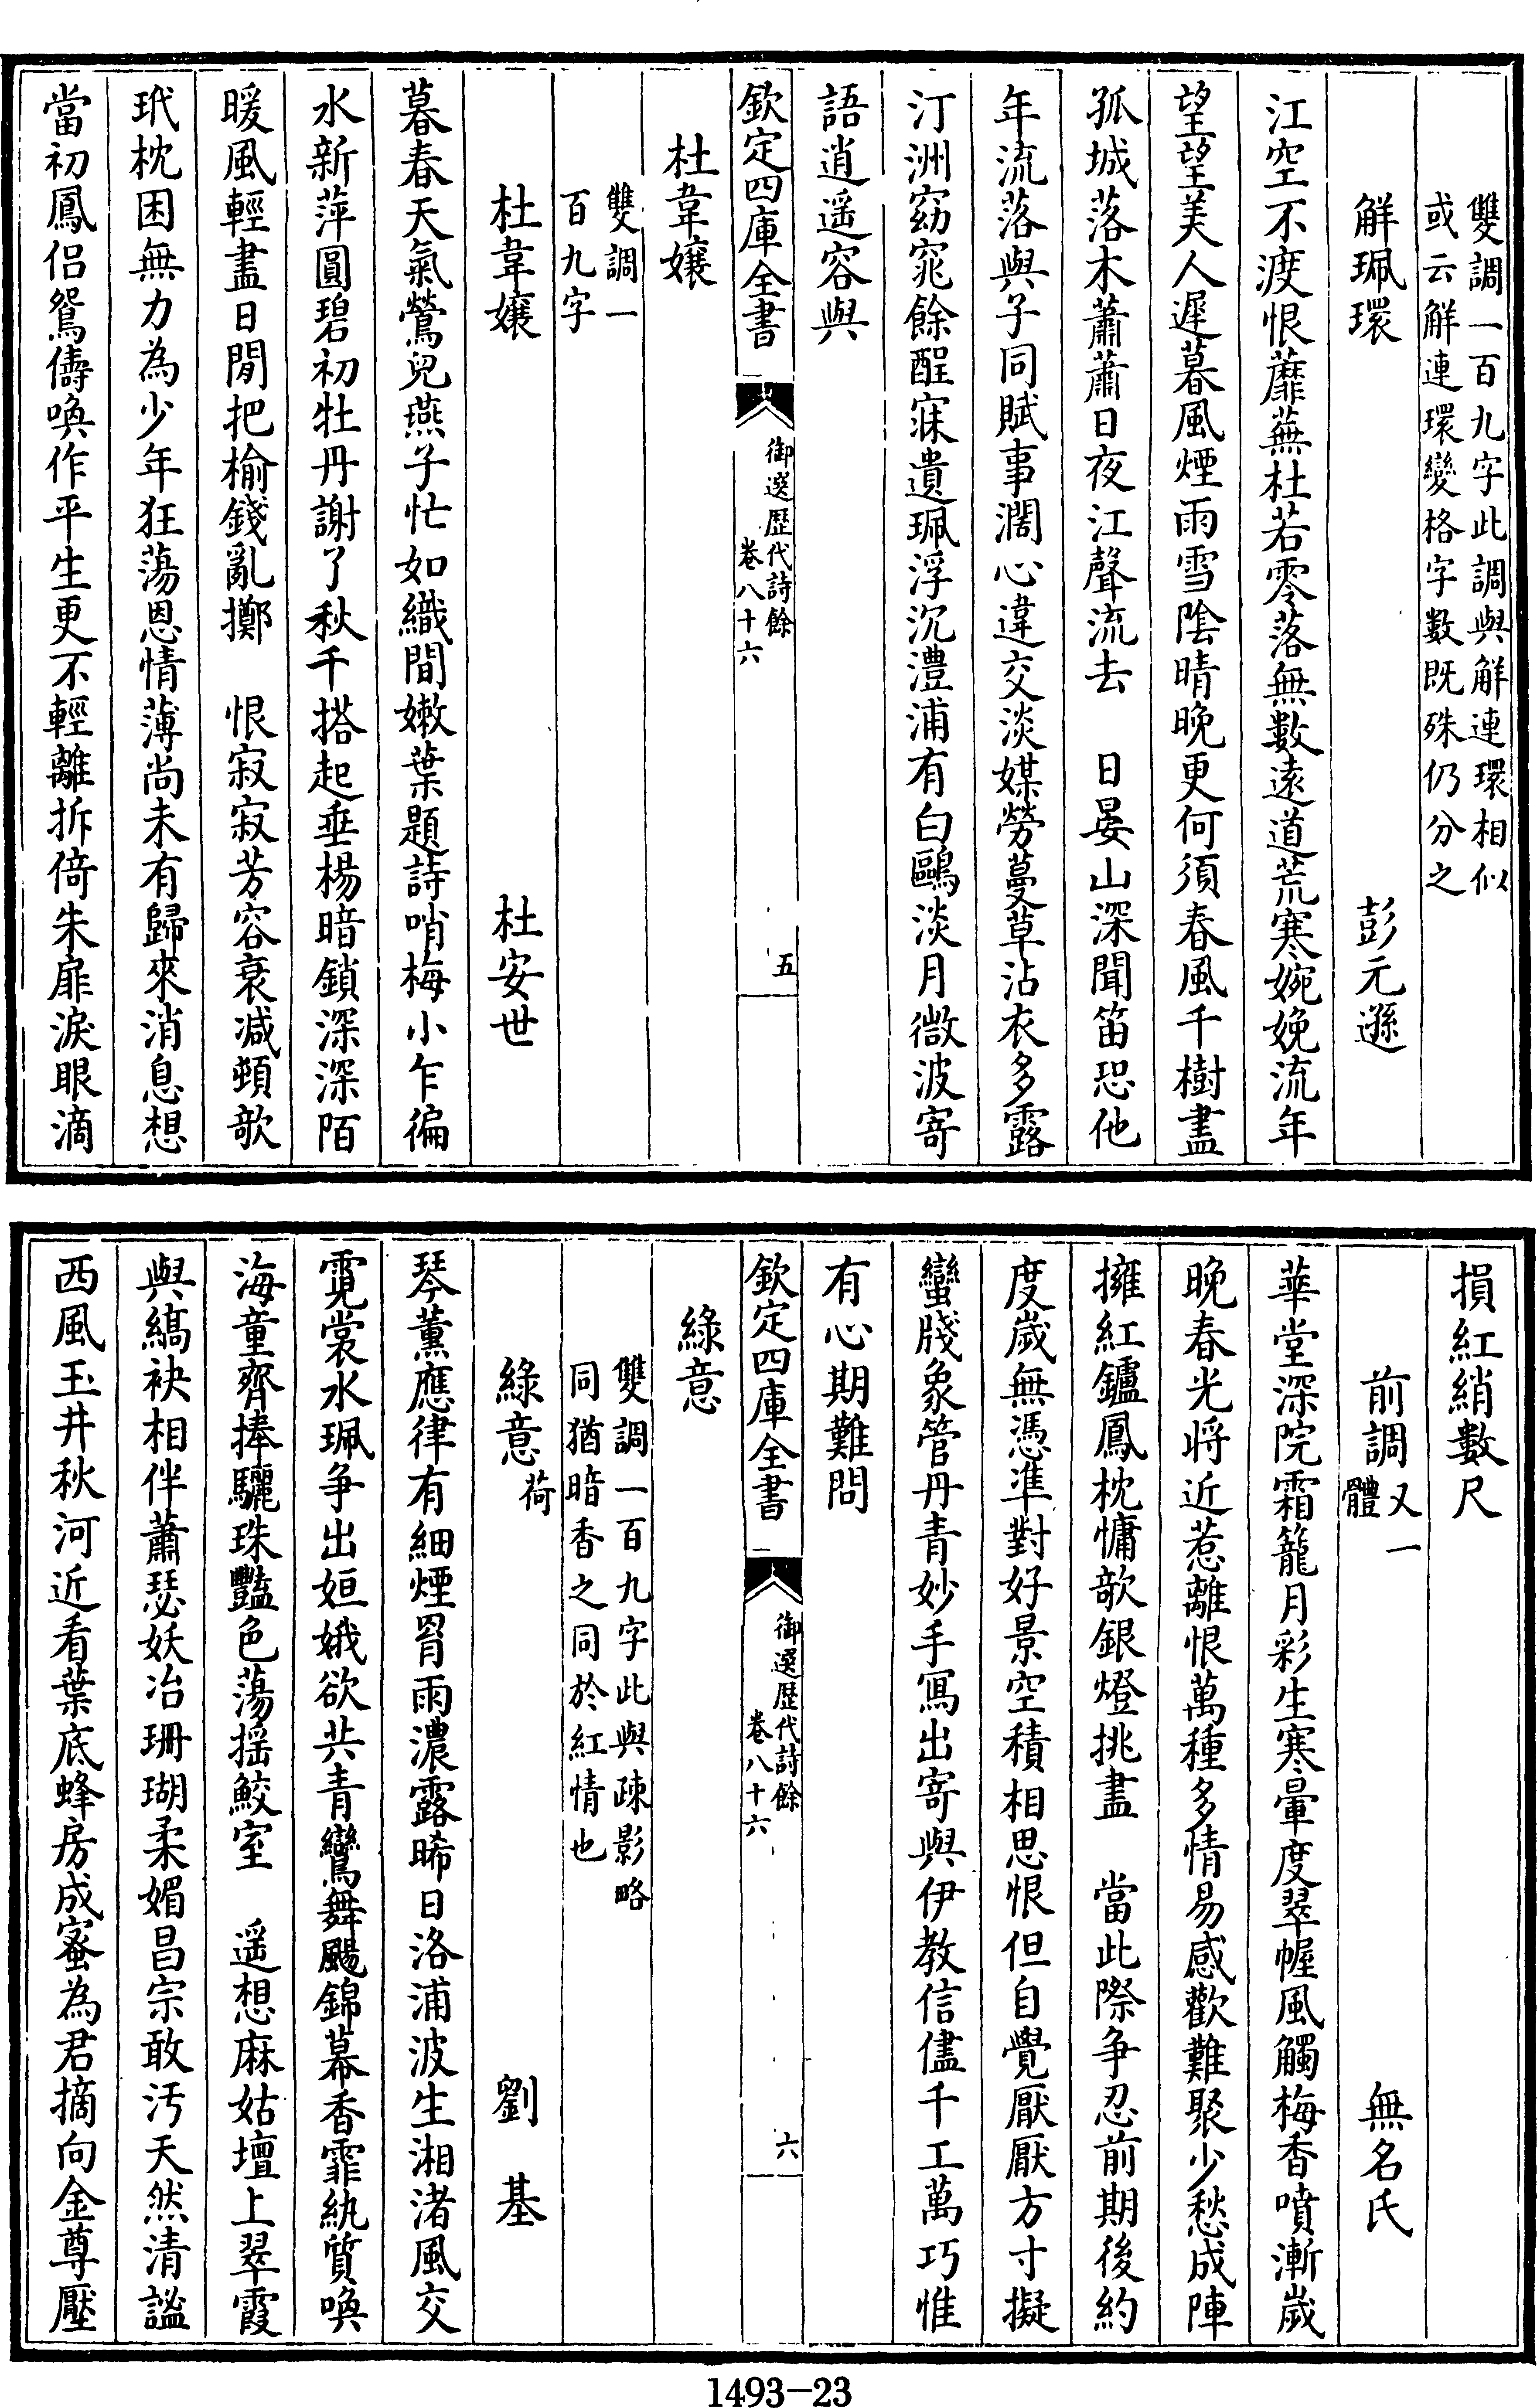 雙調一百九字此調與解連環相似
或云解連環變格字數既殊仍分之
解珮環　彭元遜
江空不渡恨蘼蕪杜若零落無數遠道荒寒婉娩流年
望望美人遲暮風煙雨雪陰晴晚更何須春風千樹盡
孤城落木蕭蕭日夜江聲流去　日晏山深聞笛恐他
年流落與子同賦事濶心違交淡媒勞蔓草沾衣多露
汀洲窈窕餘酲寐遺珮浮沉澧浦有白鷗淡月微波寄
語逍遥容與
欽定四庫全書
御選歴代詩餘
卷八十六
五
杜韋孃
雙調一
百九字
杜韋孃　杜安世
暮春天氣鶯兒燕子忙如織間嫩葉題詩哨梅小乍徧
水新萍圓碧初牡丹謝了秋千搭起垂楊暗鎖深深陌
暖風輕盡日閒把榆錢亂擲　恨寂寂芳容衰减頓欹
玳枕困無力為少年狂蕩恩情薄尚未有歸來消息想
當初鳳侣鴛儔喚作平生更不輕離拆倚朱扉淚眼滴
損紅綃數尺
前調又一
體　無名氏
華堂深院霜籠月彩生寒暈度翠幄風觸梅香噴漸歲
晚春光将近惹離恨萬種多情易感歡難聚少愁成陣
擁紅鑪鳳枕慵欹銀燈挑盡　當此際争忍前期後約
度歲無憑凖對好景空積相思恨但自覺厭厭方寸擬
蠻牋象管丹青妙手冩出寄與伊教信儘千工萬巧惟
有心期難問
欽定四庫全書
御選歴代詩餘
卷八十六
六
綠意
雙調一百九字此與疎影略
同猶暗香之同於紅情也
綠意荷　劉基
琴薰應律有細煙罥雨濃露晞日洛浦波生湘渚風交
霓裳水珮争出姮娥欲共青鸞舞颺錦幕香霏紈質喚
海童齊捧驪珠豔色蕩揺鮫室　遥想麻姑壇上翠霞
與縞袂相伴蕭瑟妖冶珊瑚柔媚昌宗敢汚天然清謐
西風玉井秋河近看葉底蜂房成蜜為君摘向金尊壓
1493—23